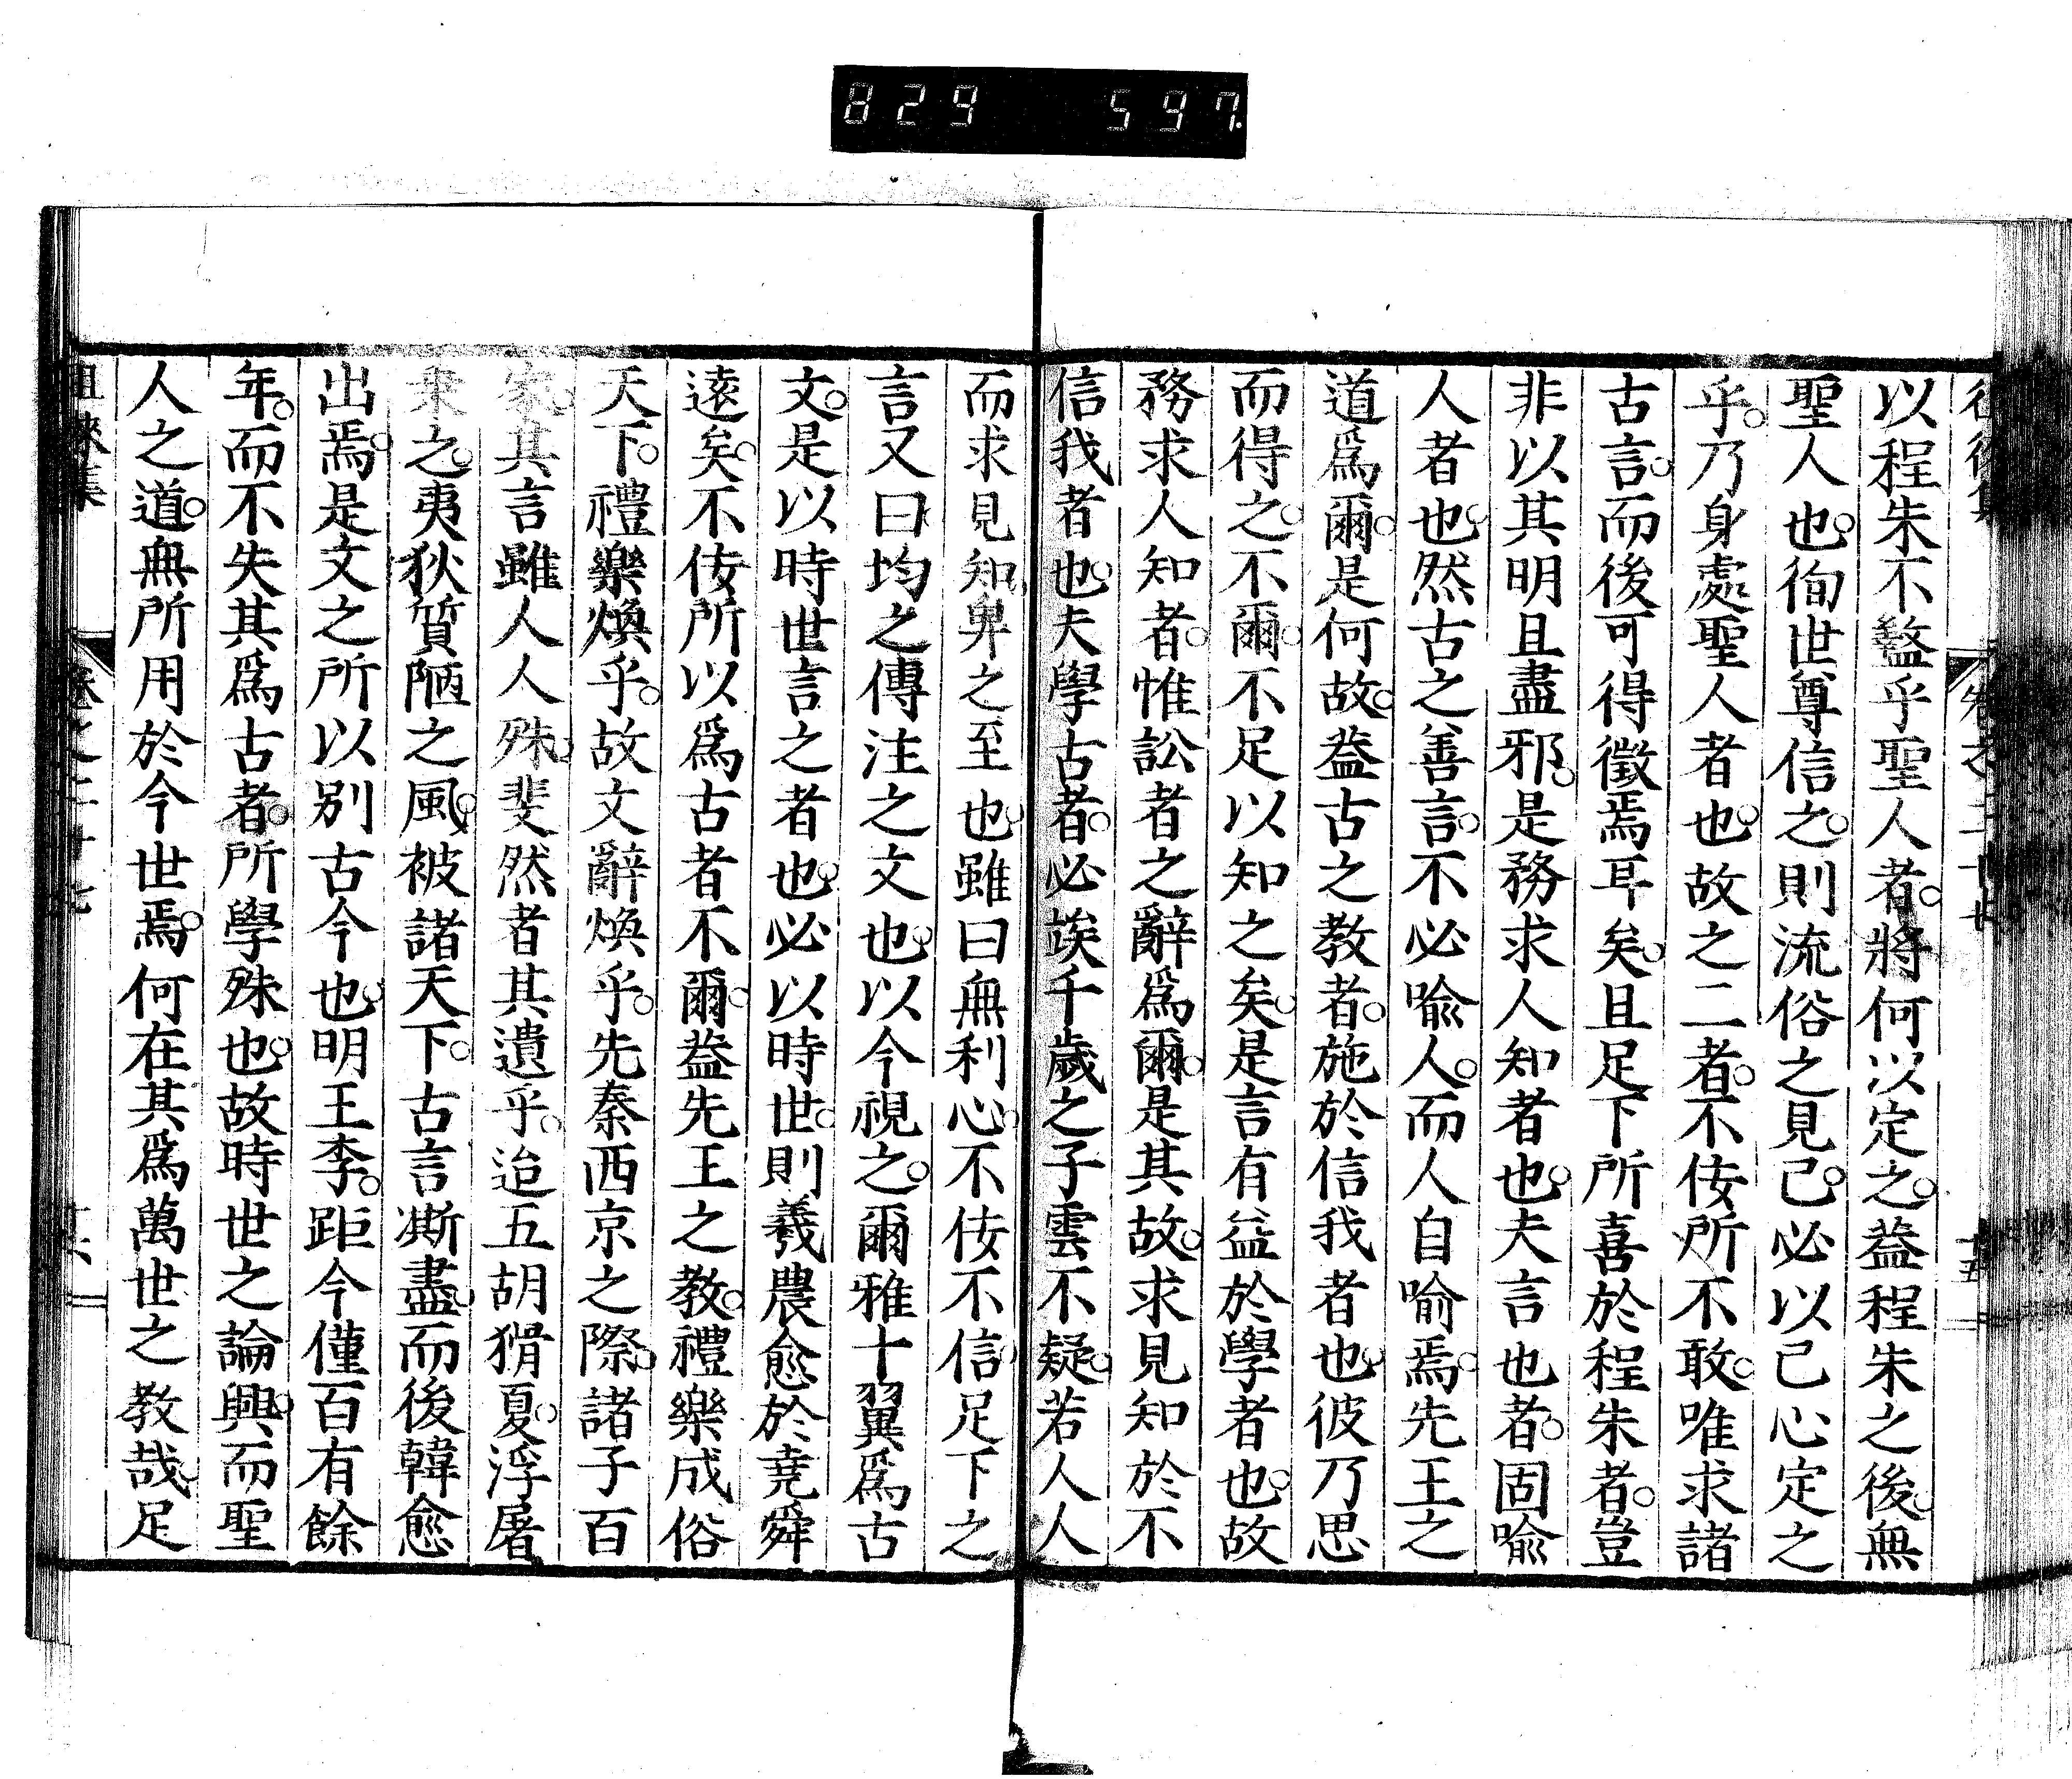 829 597
以程朱不盭乎聖人者。將何以定之。蓋程朱之後。無
聖人也。徇世尊信之。則流俗之見已。必以己心定之
乎。乃身處聖人者也。故之二者。不佞所不敢。唯求諸
古言。而後可得徵焉耳矣。且足下所喜於程朱者。豈
非以其明且盡邪。是務求人知者也。夫言也者。固喩
人者也。然古之善言。不必喩人。而人自喩焉。先王之
道爲爾。是何故。益古之教者。施於信我者也。彼乃思
而得之。不爾。不足以知之矣。是言有益於學者也。故
務求人知者。惟訟者之辭爲爾。是其故。求見知於不
信我者也。夫學古者。必竢千歲之子雲不疑。若人人
而求見知。卑之至也。雖曰無利心。不佞不信。足下之
言又曰。均之傳注之文也。以今視之。爾雅十翼爲古
文。是以時世言之者也。必以時世。則羲農愈於堯舜
遠矣。不佞所以爲古者不爾。蓋先王之教。禮樂成俗
天下。禮樂煥乎。故文辭煥乎。先秦西京之際。諸子百
家。其言雖人人殊。斐然者其遺乎。迨五胡猾夏。浮屠
乘之。夷狄質陋之風。被諸天下。古言澌盡。而後韓愈
出焉。是文之所以別古今也。明王李。距今僅百有餘
年。而不失其爲古者。所學殊也。故時世之論興。而聖
人之道。無所用於今世焉。何在其爲萬世之教哉。足
徂徠集
卷之二十七